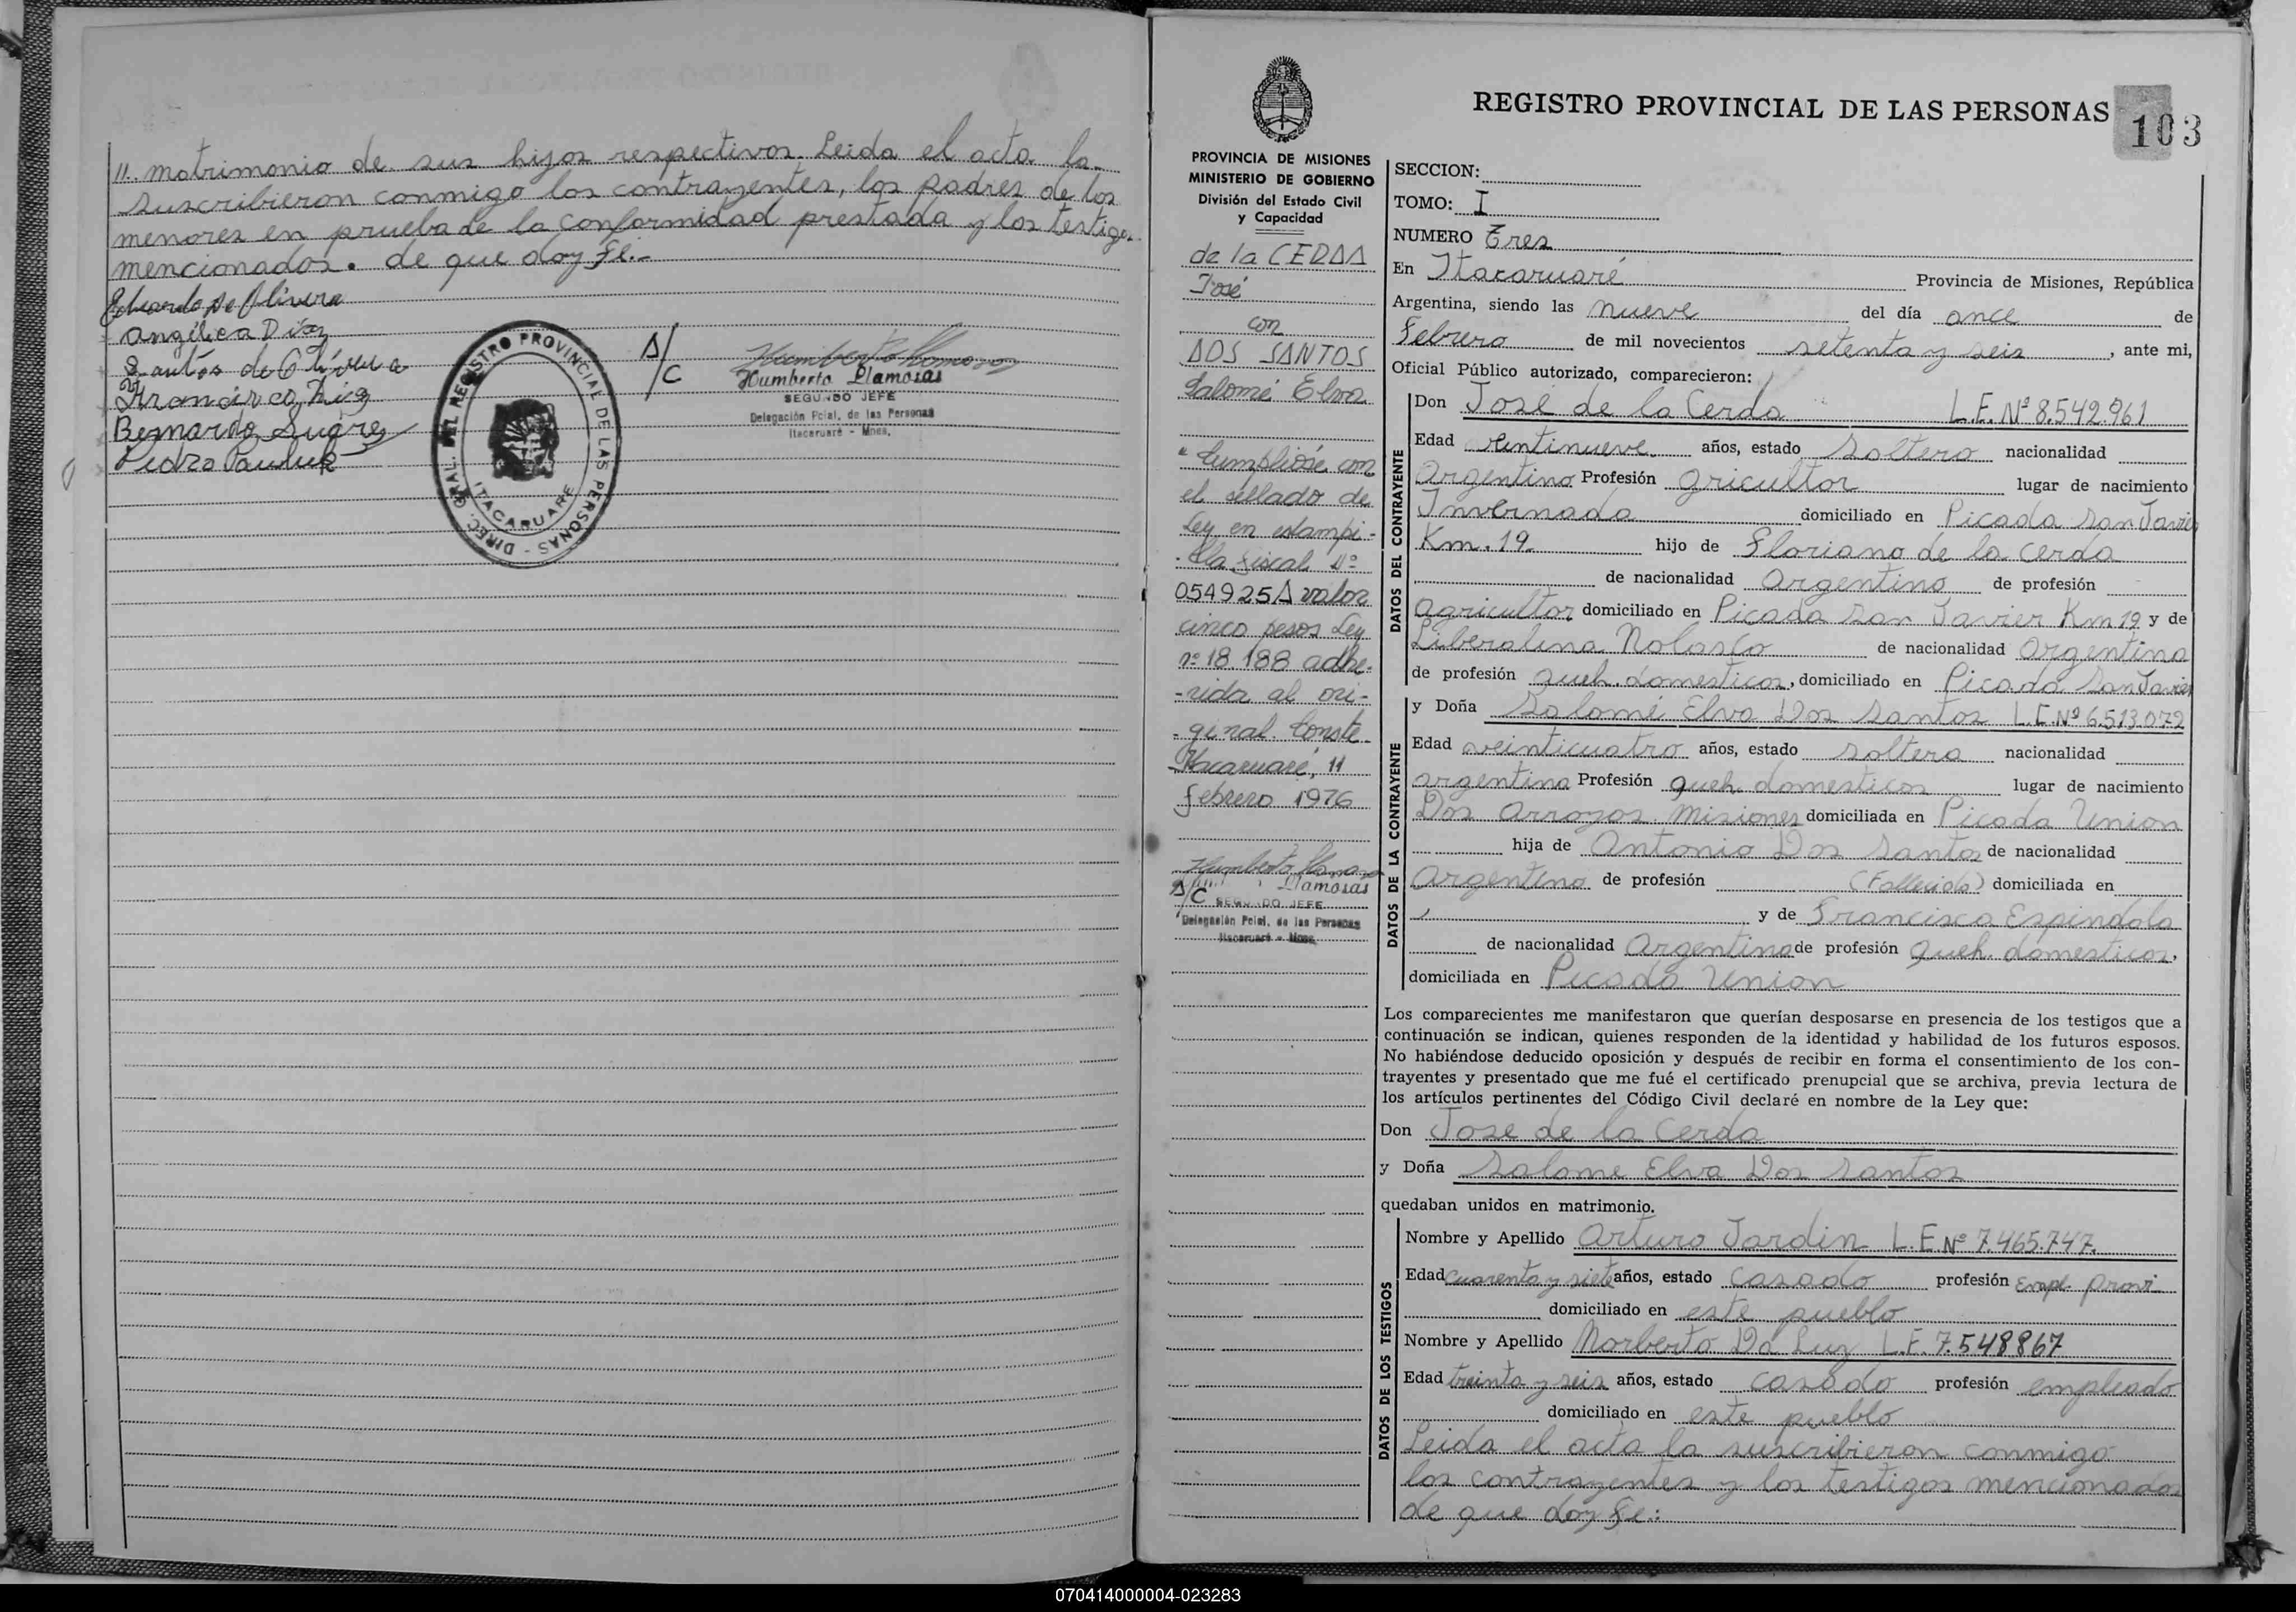 11. matrimonio de sus hijos respectivos. Leida el acta la
suscribieron conmigo los contrayentes, los padres de los
menores en prueba de la conformidad prestada y los testigos
mencionados. de que doy fé.-
Eduardo de Olivera
Angélica Díaz
Santos de Olivera
Bernardo Suárez
DIREC. GRAL. DEL REGISTRO PROVINCIAL DE LAS PERSONAS -
ITACARUARE
A/C
Humberto Llamosas
SEGUNDO JEFE
Delegación Pcial. de las Personas
Itacaruaré - Mnes.
REGISTRO PROVINCIAL DE LAS PERSONAS
103
PROVINCIA DE MISIONES
MINISTERIO DE GOBIERNO
División del Estado Civil
y Capacidad
de la CERDA
José
con
DOS SANTOS
Salomé Elva
"Cumplióse con
el sellado de
Ley en estampi-
lla fiscal Nº
054925A valor
cinco pesos Ley
nº 18.188 adhe-
-rida al ori-
-ginal. Conste.
Itacaruaré, 11
febrero 1976
A/C Llamosas
SEGUNDO JEFE
Delegación Pcial. de las Personas
Itacaruaré - Mnes.
SECCION:
TOMO: I
NUMERO Tres
En Itacaruaré Provincia de Misiones, República
Argentina, siendo las nueve del día once de
Febrero de mil novecientos setenta y seis, ante mi,
Oficial Público autorizado, comparecieron:
DATOS DEL CONTRAYENTE
Don José de la Cerda L.E. Nº 8.542.961
Edad ventinueve. años, estado Soltero nacionalidad
Argentino Profesión gricultor lugar de nacimiento
Invernada domiciliado en Picada San Javier
Km. 19. hijo de Floriano de la Cerda
de nacionalidad Argentino de profesión
agricultor domiciliado en Picada San Javier Km 19 y de
Liberalina Nolasco de nacionalidad Argentina
de profesión queh. domesticos, domiciliado en Picada San Javier
DATOS DE LA CONTRAYENTE
y Doña Salomé Elva Dos Santos L.C. Nº 6.513.072
Edad veinticuatro años, estado soltera nacionalidad
argentina Profesión queh. domesticos lugar de nacimiento
Dos Arroyos Misiones domiciliada en Picada Union
hija de Antonio Dos Santos de nacionalidad
Argentino de profesión (Fallecido) domiciliada en
y de Francisca Espindola
de nacionalidad Argentina de profesión queh. domesticos,
domiciliada en Picada Union
Los comparecientes me manifestaron que querían desposarse en presencia de los testigos que a
continuación se indican, quienes responden de la identidad y habilidad de los futuros esposos.
No habiéndose deducido oposición y después de recibir en forma el consentimiento de los con-
trayentes y presentado que me fué el certificado prenupcial que se archiva, previa lectura de
los artículos pertinentes del Código Civil declaré en nombre de la Ley que:
Don Jose de la Cerda
y Doña Salome Elva Dos Santos
quedaban unidos en matrimonio.
DATOS DE LOS TESTIGOS
Nombre y Apellido Arturo Jardin L.E Nº 7.465.747.
Edad cuarenta y siete años, estado casado profesión empl. provi.
domiciliado en este pueblo
Nombre y Apellido Norberto Da Luz L.E. 7.548867
Edad treinta y seis años, estado casado profesión empleado
domiciliado en este pueblo
Leida el acta la suscribieron conmigo
los contrayentes y los testigos mencionados
de que doy fe.:
070414000004-023283